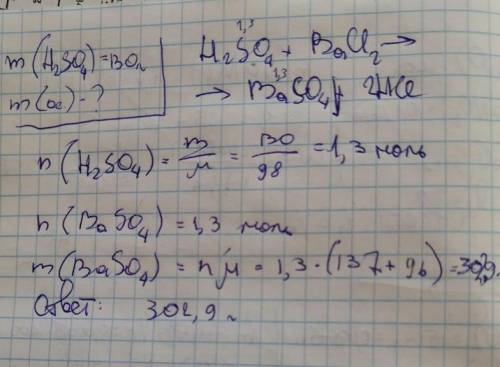 m(H₂SO₄)=130г
m(ос)-?
1,3
H₂SO₄ + BaCl₂ →
1,3
→ BaSO₄↓ + 2HCl
n(H₂SO₄) = m/μ = 130/98 = 1,3 моль
n(BaSO₄) = 1,3 моль
m(BaSO₄) = n·μ = 1,3·(137+96) = 302,9г.
Ответ: 302,9г